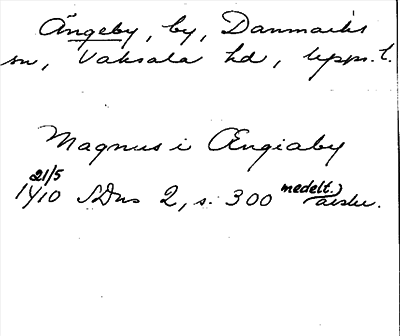 Ängeby, by, Danmarks
sn, Vaksala hd, Upps. l.
Magnus i Ængiaby
21/5
1410 SDns 2, s. 300 medelt. avskr.